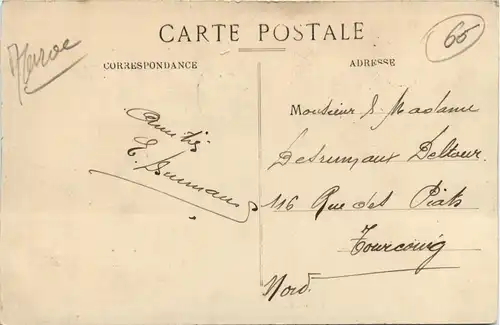 CARTE POSTALE
Maroc
60
CORRESPONDANCE
ADRESSE
Amitiés
Monsieur & Madame
Desrumaux Deltour
116 Rue des Piats
Tourcoing
Nord.